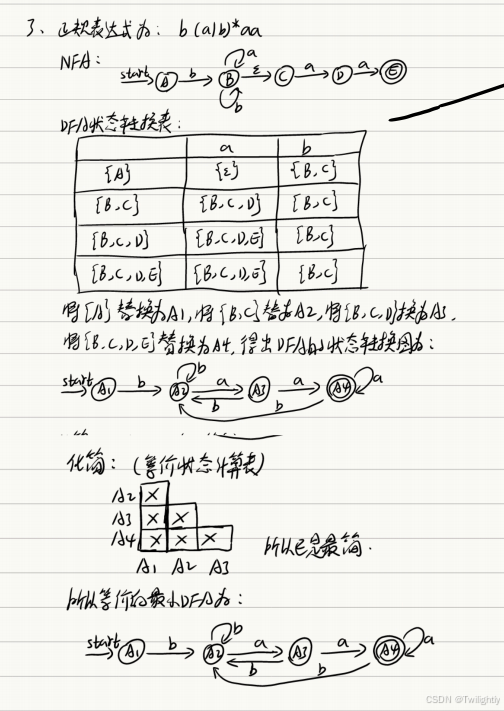 3、正规表达式为: b(a|b)*aa
NFA:
start A b B a b ε C a D a E
DFA状态转换表:
a b
{A} {ε} {B,C}
{B,C} {B,C,D} {B,C}
{B,C,D} {B,C,D,E} {B,C}
{B,C,D,E} {B,C,D,E} {B,C}
将{A}替换为A1,将{B,C}替为A2,将{B,C,D}换为A3,
将{B,C,D,E}替换为A4,得出DFA的状态转换图为:
start A1 b A2 b a b A3 a b A4 a
化简: (等价状态计算表)
A2 X
A3 X X
A4 X X X
A1 A2 A3
所以已是最简.
所以等价的最小DFA为:
start A1 b A2 b a b A3 a b A4 a
CSDN @Twilightly